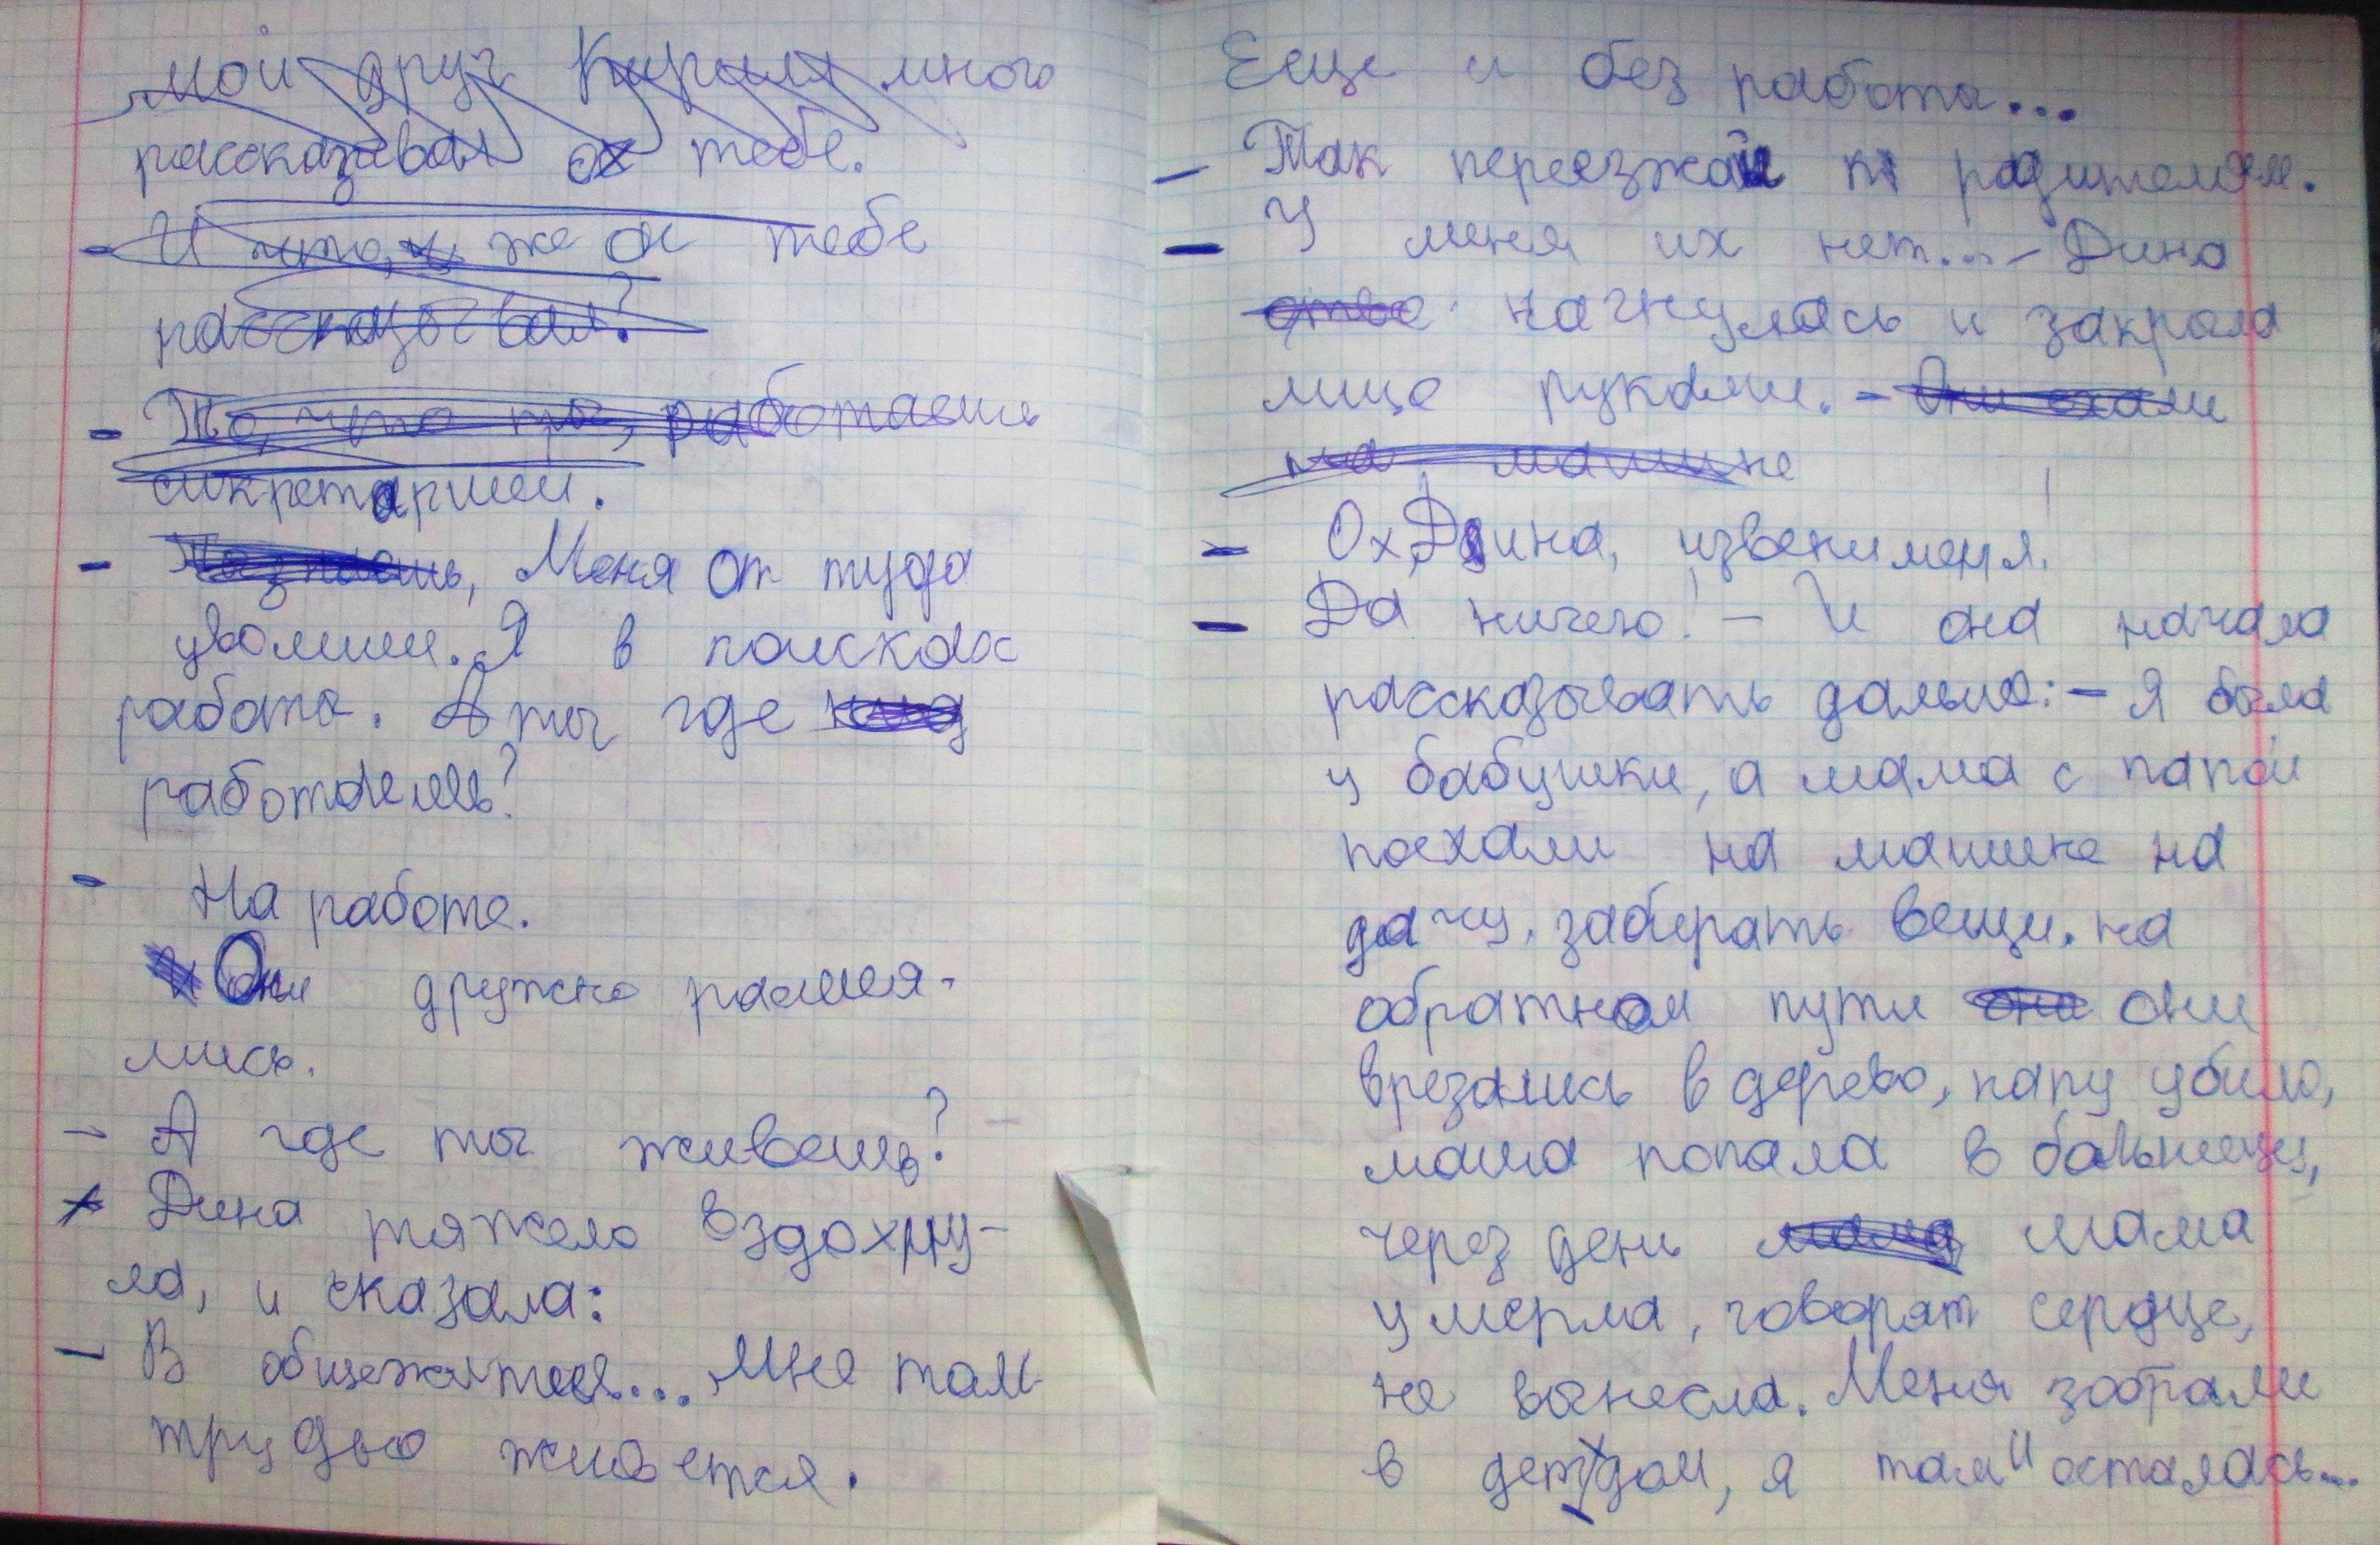 мой друг Кирилл много
рассказывал о тебе.
- И что, же он тебе
рассказывал?
- То, что ты, работаешь
сикретаршей.
- Меня от туда
уволили. Я в поисках
работы. А ты где
работаешь?
- На работе.
Они дружно рассмея-
лись.
- А где ты живёшь?
Дина тяжело вздохну-
ла, и сказала:
- В общежитие... Мне там
трудно живется.
Ееще и без работы...
- Так переезжай к родителям.
- У меня их нет... - Дина
отве нагнулась и закрыла
лице руками. - Они ехали
на машине
- Ох, Дина, извени меня!
- Да ничего! - И она начала
рассказывать дальше: - Я была
у бабушки, а мама с папой
поехали на машине на
дачу, забирать вещи. на
обратном пути они они
врезались в дерево, папу убило,
мама попала в больницу,
через день мама мама
умерла, говорят сердце,
не вынесла. Меня зобрали
в детдом, я там и осталась...